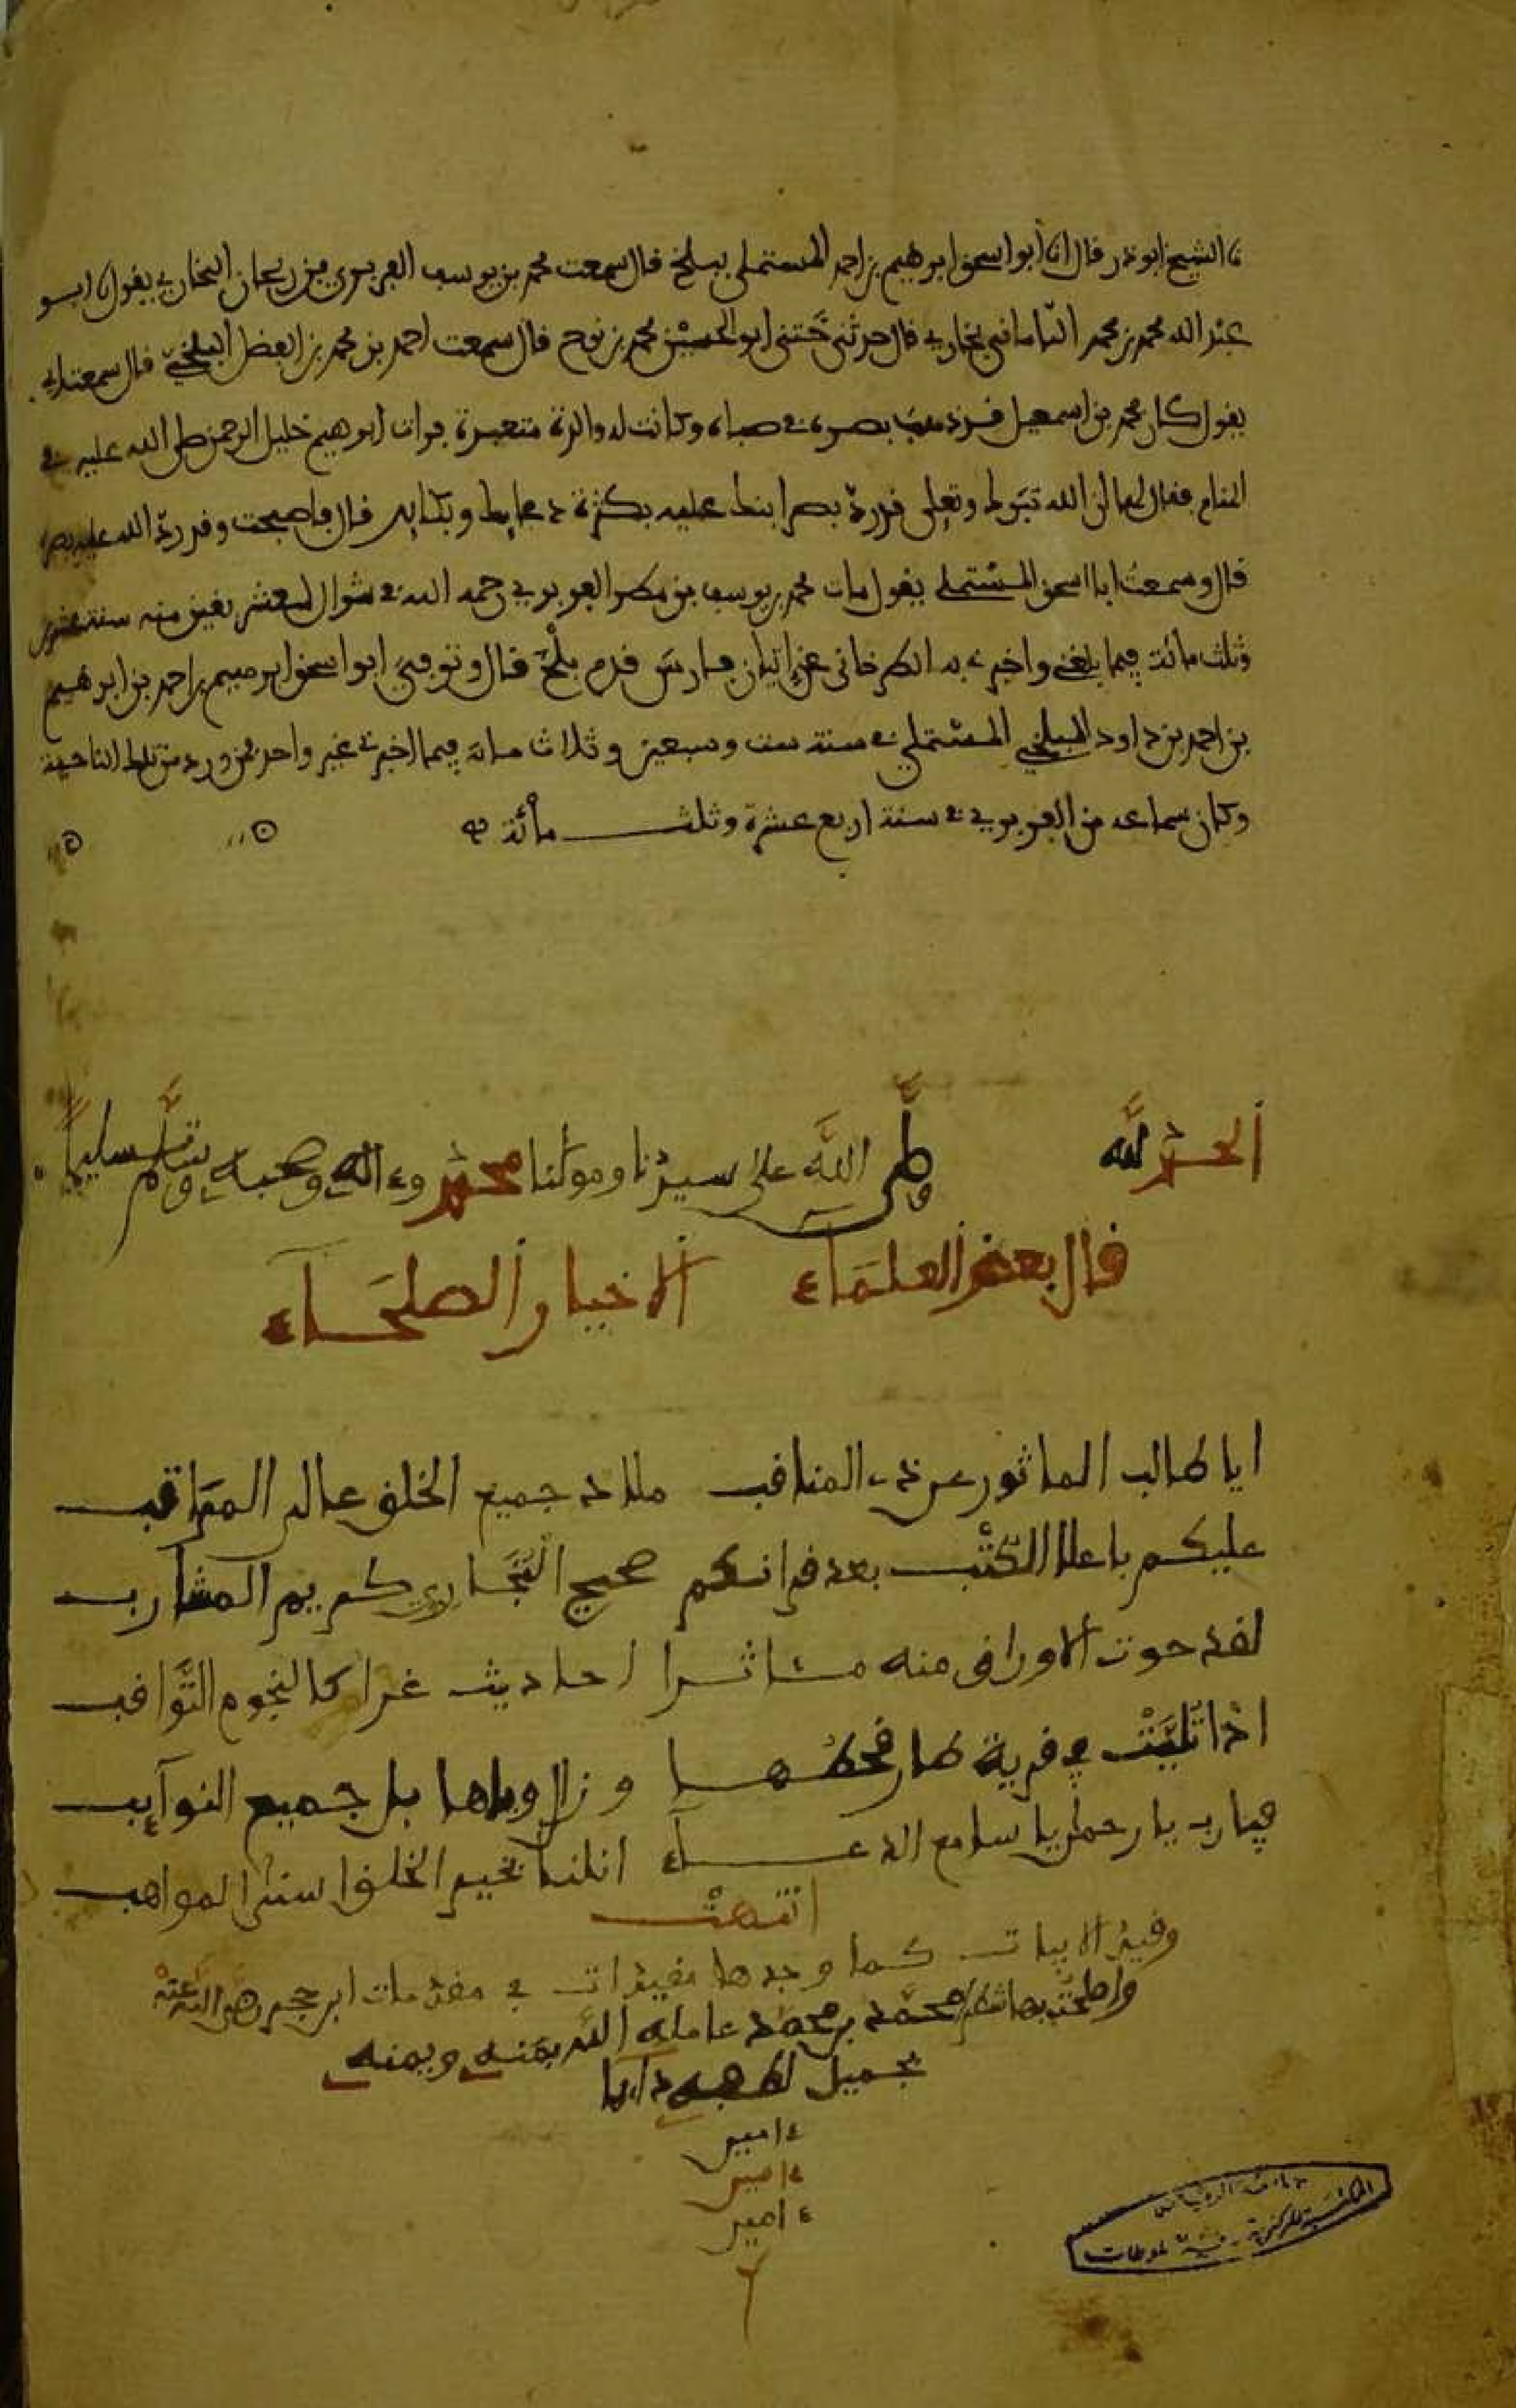 نا الشيخ ابو ذر قال انا ابو اسحق ابرهيم بن احمد المستملي ببلخ قال سمعت محمد بن يوسف الفربري من ريحان البخاري يقول نا ابو
عبد الله محمد بن محمد الباماني بخاري قال حدثني ختني ابو الحسن محمد بن نوح قال سمعت احمد بن محمد بن الفضل البلخي قال سمعت ابي
يقول كان محمد بن اسمعيل قد ذهب بصره في صباه وكانت له والدة متعبدة فرات ابرهيم خليل الرحمن صلى الله عليه في
المنام فقال لها ان الله تبرك وتعلى قد رد بصر ابنك عليه بكثرة دعايك وبكايك قال فاصبحت وقد رد الله عليه بصره
قال وسمعت ابا اسحق المستملي يقول مات محمد بن يوسف بن مطر الفربري رحمه الله في شوال لعشر بقين منه سنة عشرين
وثلث مائة فيما بلغني واخبرني به الكرخاني عن اتيان فارس قدم بلخ قال وتوفي ابو اسحق ابرهيم بن احمد بن ابرهيم
بن احمد بن داود البلخي المستملي في سنة ست وسبعين وثلاث مائة فيما اخبرني غير واحد ممن ورد من تلك الناحية
وكان سماعه من الفربري في سنة اربع عشرة وثلث مائة
الحمد لله وصلى الله على سيدنا ومولنا محمد وءاله وصحبه وسلم تسليما
قال بعض العلماء الاخيار الصلحاء
ايا طالب الماثور عن ذي المناقب ملاذ جميع الخلق عال المراقب
عليكم باعلا الكتب بعد قرانكم صحيح البخاري كريم المشارب
لقد حوت الاوراق منه مئاثرا احاديث غرا كالنجوم الثواقب
اذا تليت في قرية طار قحطها وزال وباها بل جميع النوآيب
فيارب يا رحمن يا سامع الدعاء انلنا بخير الخلق اسنى المواهب
انتهت
وقيد الابيات كما وجدها مقيدات في مقدمات ابن حجر رضي الله عنه
محمد بن محمد عامله الله بمنه ويمنه
بجميل لطفه دايما
ءامين
ءامين
ءامين